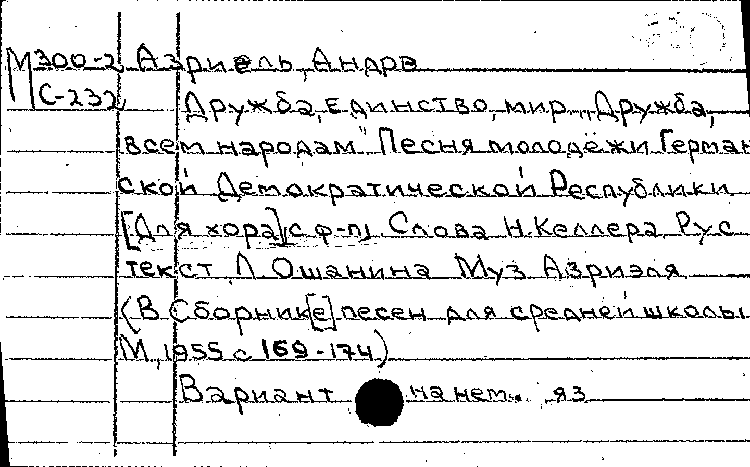 М300-2 Азриель, Андрэ
С-232 Дружба, единство, мир „Дружба,
всем народам" Песня молодёжи Герман
ской Демократической Республики
[Для хора] с ф-п. Слова Н. Келлера Рус
текст Л Ошанина Муз Азриэля
(В Сборник[е] песен для средней школы
М, 1955 с 169-174)
Вариант на нем. яз